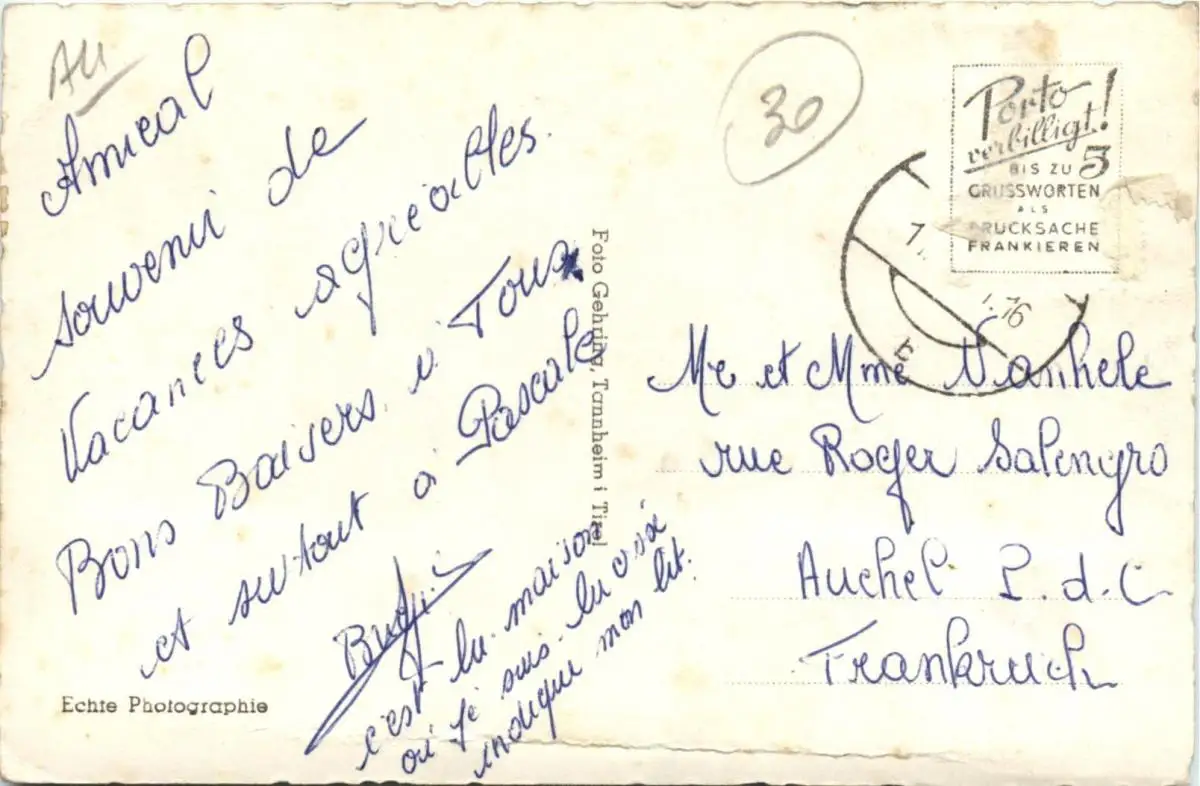 Au
Amical
souvenir de
Vacances agréables.
Bons Baisers à Tous
et surtout à Pascale
c'est la maison
où je suis. la croix
indique mon lit.
Echte Photographie
Foto Gehring, Tannheim i Tirol
30
Porto
verbilligt!
BIS ZU 5
GRUSSWORTEN
ALS
DRUCKSACHE
FRANKIEREN
7
16
b
Mr et Mme Vanhele
rue Roger Salengro
Auchel P.d.C
Frankruch